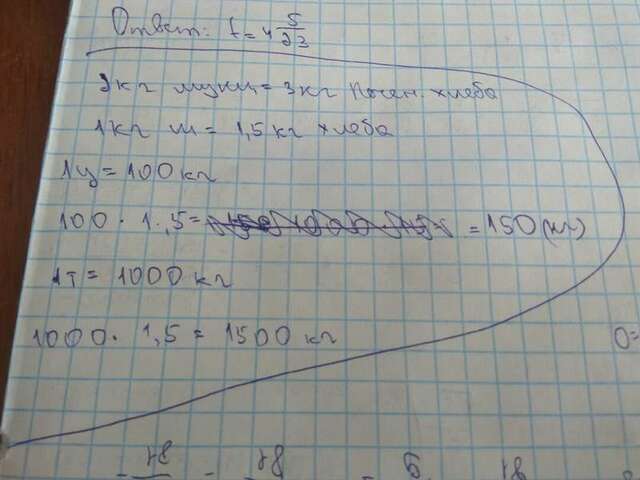 Ответ: t = 4 5/23
2кг муки = 3кг пшен. хлеба
1кг м = 1,5кг хлеба
1ц = 100кг
100 · 1,5 = = 150 (кг)
1т = 1000кг
1000 · 1,5 = 1500кг